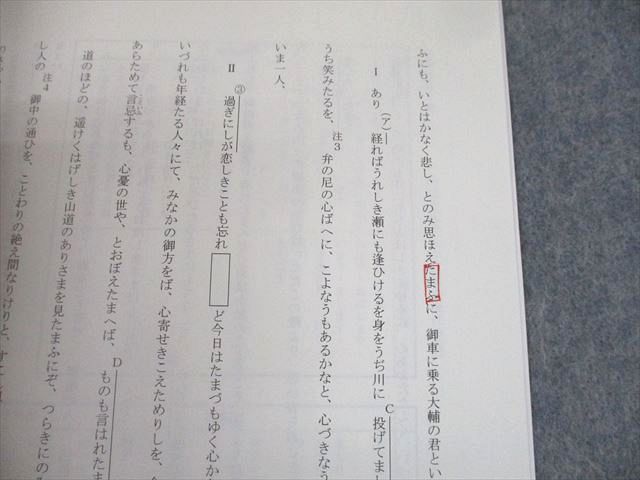 ふにも、いとはかなく悲し、とのみ思ほえたまふに、御車に乗る大輔の君とい
Ⅰ あり(ア)経ればうれしき瀬にも逢ひけるを身をうぢ川に C投げてまし
うち笑みたるを、注3弁の尼の心ばへに、こよなうもあるかなと、心づきなう
いま一人、
Ⅱ ③過ぎにしが恋しきことも忘れ ど今日はたまづもゆく心か
いづれも年経たる人々にて、みなかの御方をば、心寄せきこえためりしを、
あらためて言忌するも、心憂の世や、とおぼえたまへば、Dものも言はれたま
道のほどの、遥けくはげしき山道のありさまを見たまふにぞ、つらきにのみ
し人の注4御中の通ひを、ことわりの絶え間なりけりと、すこし